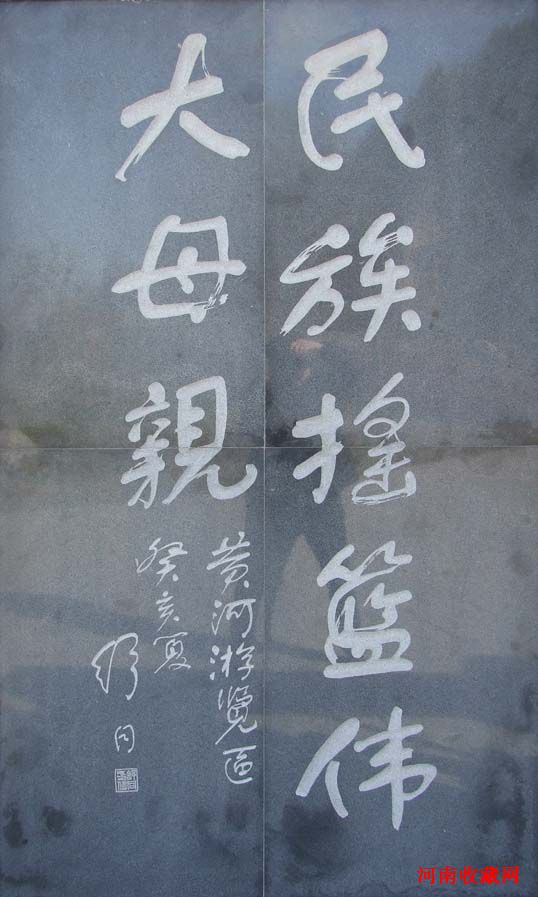 民族摇篮伟
大母親
黄河游覽區
癸亥夏
舒同
河南收藏网